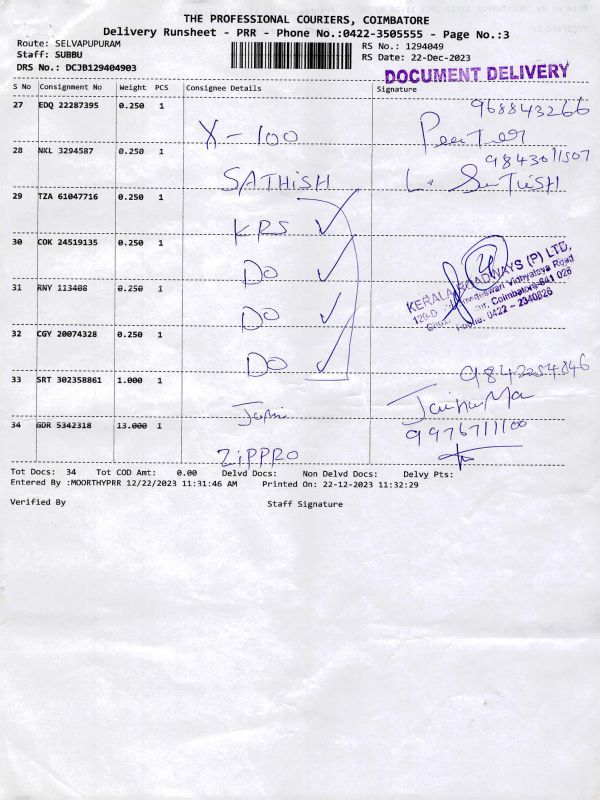 THE PROFESSIONAL COURIERS, COIMBATORE
Delivery Runsheet - PRR - Phone No.:0422-3505555 - Page No.:3
Route: SELVAPUPURAM
Staff: SUBBU
DRS No.: DCJB129404903
RS No.: 1294049
RS Date: 22-Dec-2023
DOCUMENT DELIVERY
S No Consignment No Weight PCS Consignee Details Signature
27 EDQ 22287395 0.250 1 X-100 968843266
28 NKL 3294587 0.250 1 SATHISH 9843011507
L. SATHISH
29 TZA 61047716 0.250 1 KRS ✓
30 COK 24519135 0.250 1 DO ✓
31 RNY 113408 0.250 1 DO ✓
32 CGY 20074328 0.250 1 DO ✓
KERALA ROADWAYS (P) LTD,
129-D Vidhyalaya Road
Coimbatore-641 026
Phone: 0422 - 2340826
33 SRT 302358861 1.000 1
34 GDR 5342318 13.000 1 ZIPPRO 9976711100
Tot Docs: 34 Tot COD Amt: 0.00 Delvd Docs: Non Delvd Docs: Delvy Pts:
Entered By :MOORTHYPRR 12/22/2023 11:31:46 AM Printed On: 22-12-2023 11:32:29
Verified By Staff Signature